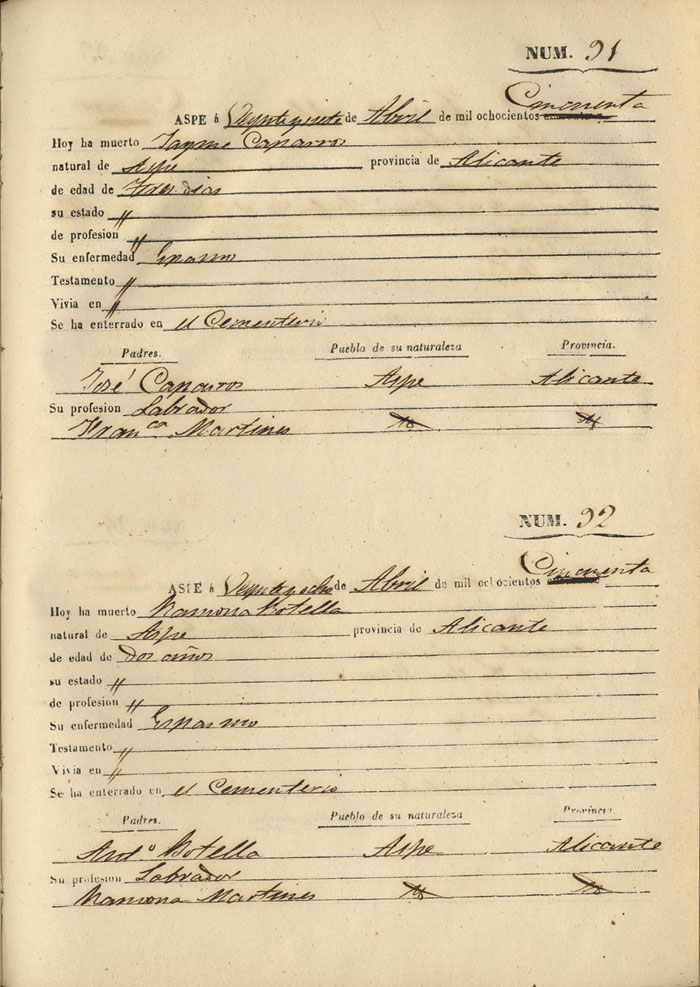 NUM. 91
Cincuenta
ASPE á de Abril de mil ochocientos
Hoy ha muerto Jayme Canarros
natural de Aspe provincia de Alicante
de edad de Tres dias
su estado "
de profesion "
Su enfermedad Epasmo
Testamento "
Vivia en "
Se ha enterrado en el Cementerio
Padres. Pueblo de su naturaleza Provincia.
José Canarros Aspe Alicante
Su profesion Labrador
Fran.ca Martines
NUM. 92
Cincuenta
ASPE á Veynteyocho de Abril de mil ochocientos
Hoy ha muerto Ramona Botella
natural de Aspe provincia de Alicante
de edad de Dos años
su estado "
de profesion "
Su enfermedad Espasmo
Testamento "
Vivia en "
Se ha enterrado en el Cementerio
Padres. Pueblo de su naturaleza Provincia
Ant.o Botella Aspe Alicante
Su profesion Labrador
Ramona Martines